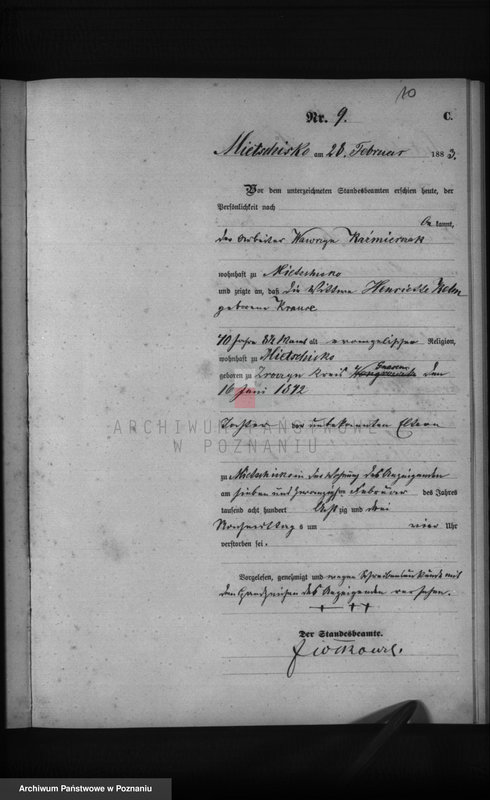 10
Nr. 9. C.
Mietschisko am 28. Februar 1883.
Vor dem unterzeichneten Standesbeamten erschien heute, der
Persönlichkeit nach
be kannt,
der Arbeiter Wawrzyn Kaźmierzak
wohnhaft zu Mietschisko
und zeigte an, daß die Wittwe Henriette
geborene Krause
40 Jahre alt evangelischer Religion,
wohnhaft zu Mietschisko
geboren zu Kreis Gnesen den
16 Juni 1842
Tochter der unbekannten Eltern
zu Mietschisko in der Wohnung des Anzeigenden
am sieben und zwanzigsten Februar des Jahres
tausend acht hundert achtzig und drei
Nachmittags um vier Uhr
verstorben sei.
Vorgelesen, genehmigt und wegen Schreibensunkunde mit
dem Handzeichen des Anzeigenden versehen.
+ + +
Der Standesbeamte.
ARCHIWUM PAŃSTWOWE
W POZNANIU
Archiwum Państwowe w Poznaniu